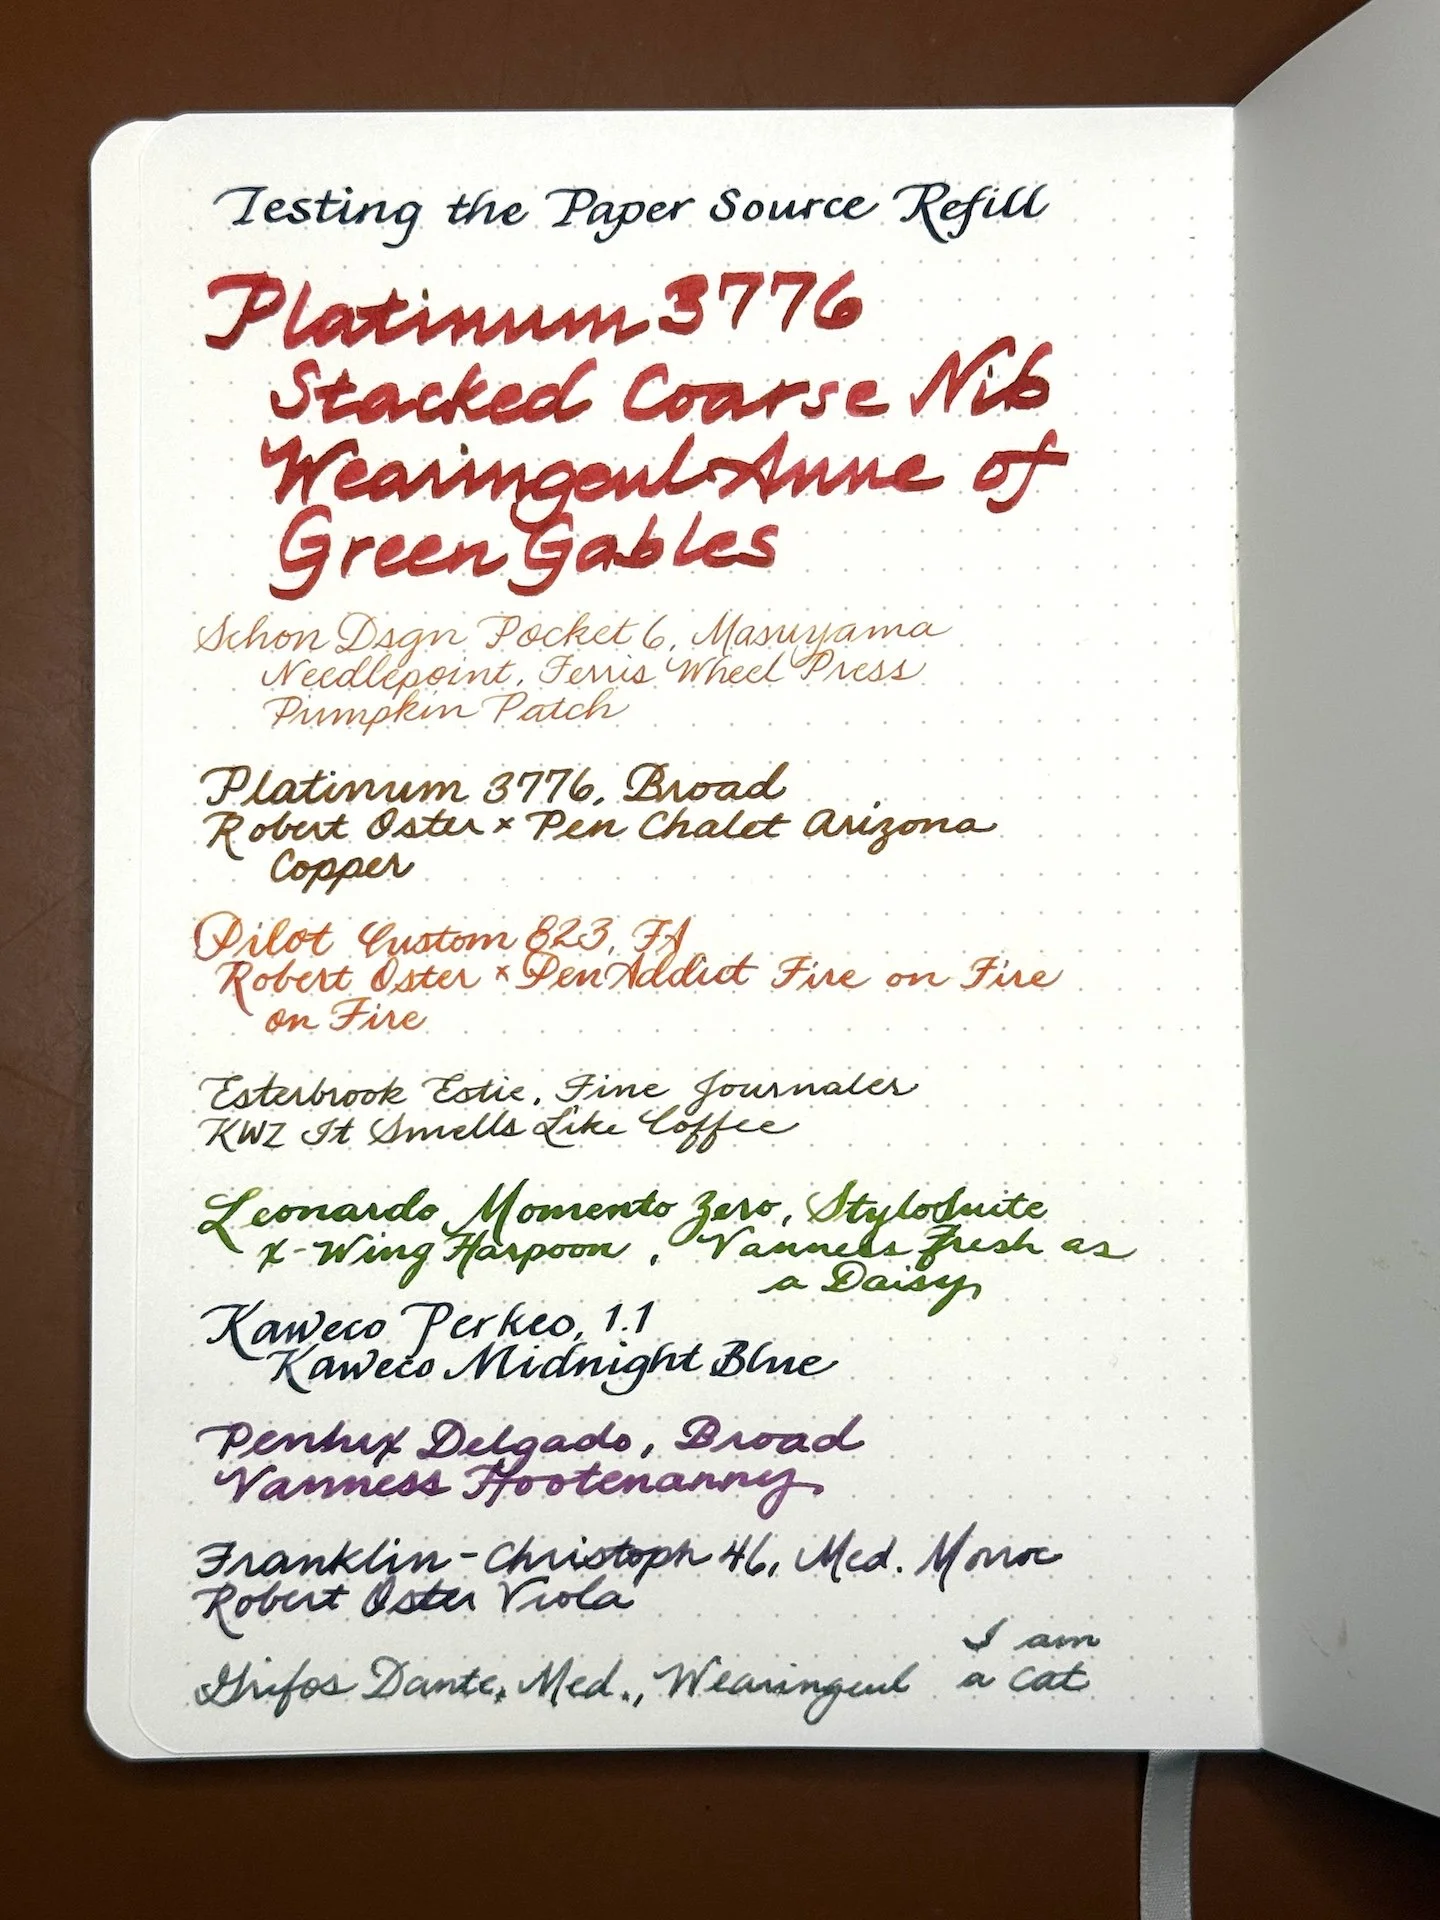 Testing the Paper Source Refill
Platinum 3776
Stacked Coarse Nib
Wearingeul Anne of
Green Gables
Schon Dsgn Pocket 6, Masuyama
Needlepoint, Ferris Wheel Press
Pumpkin Patch
Platinum 3776, Broad
Robert Oster x Pen Chalet Arizona
Copper
Pilot Custom 823, FA
Robert Oster x Pen Addict Fire on Fire
on Fire
Esterbrook Estie, Fine Journaler
KWZ It Smells Like Coffee
Leonardo Momento Zero, StyloSuite
X-Wing Harpoon, Vanness Fresh as
a Daisy
Kaweco Perkeo, 1.1
Kaweco Midnight Blue
Penlux Delgado, Broad
Vanness Hootenanny
Franklin-Christoph 46, Med.
Robert Oster Viola
I am
Grifos Dante, Med., Wearingeul a Cat